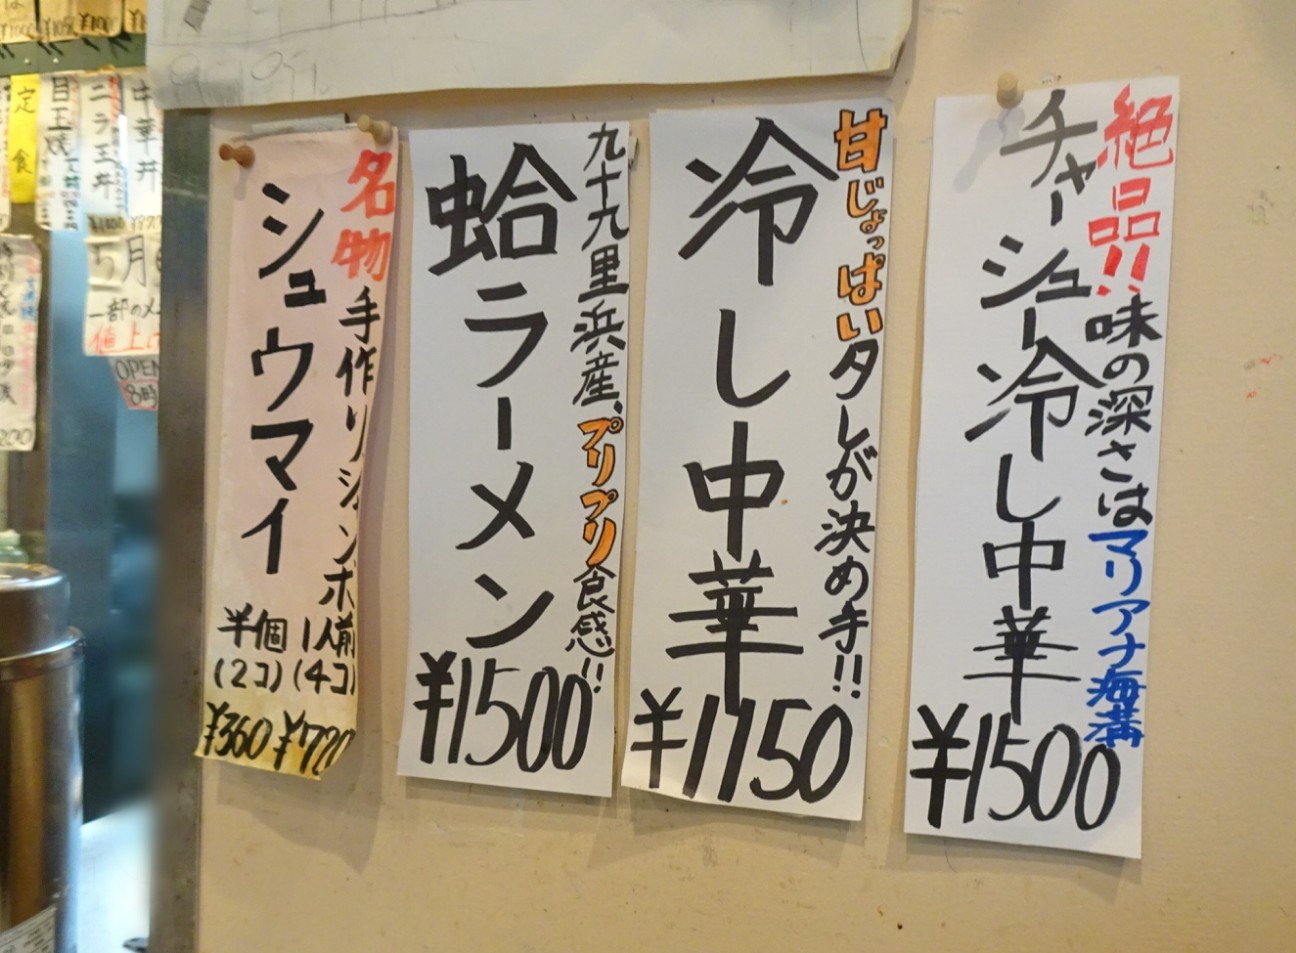 絶品!!味の深さはマリアナ海溝
チャーシュー冷し中華
¥1500
甘じょっぱいタレが決め手!!
冷し中華
¥1150
九十九里浜産、プリプリ食感!!
蛤ラーメン
¥1500
名物手作りジャンボ
シュウマイ
半個 1人前
(2コ) (4コ)
¥360 ¥720
中華丼
ニラ玉丼
目玉焼
定食
5月
一部のメ
値上
OPEN
8時